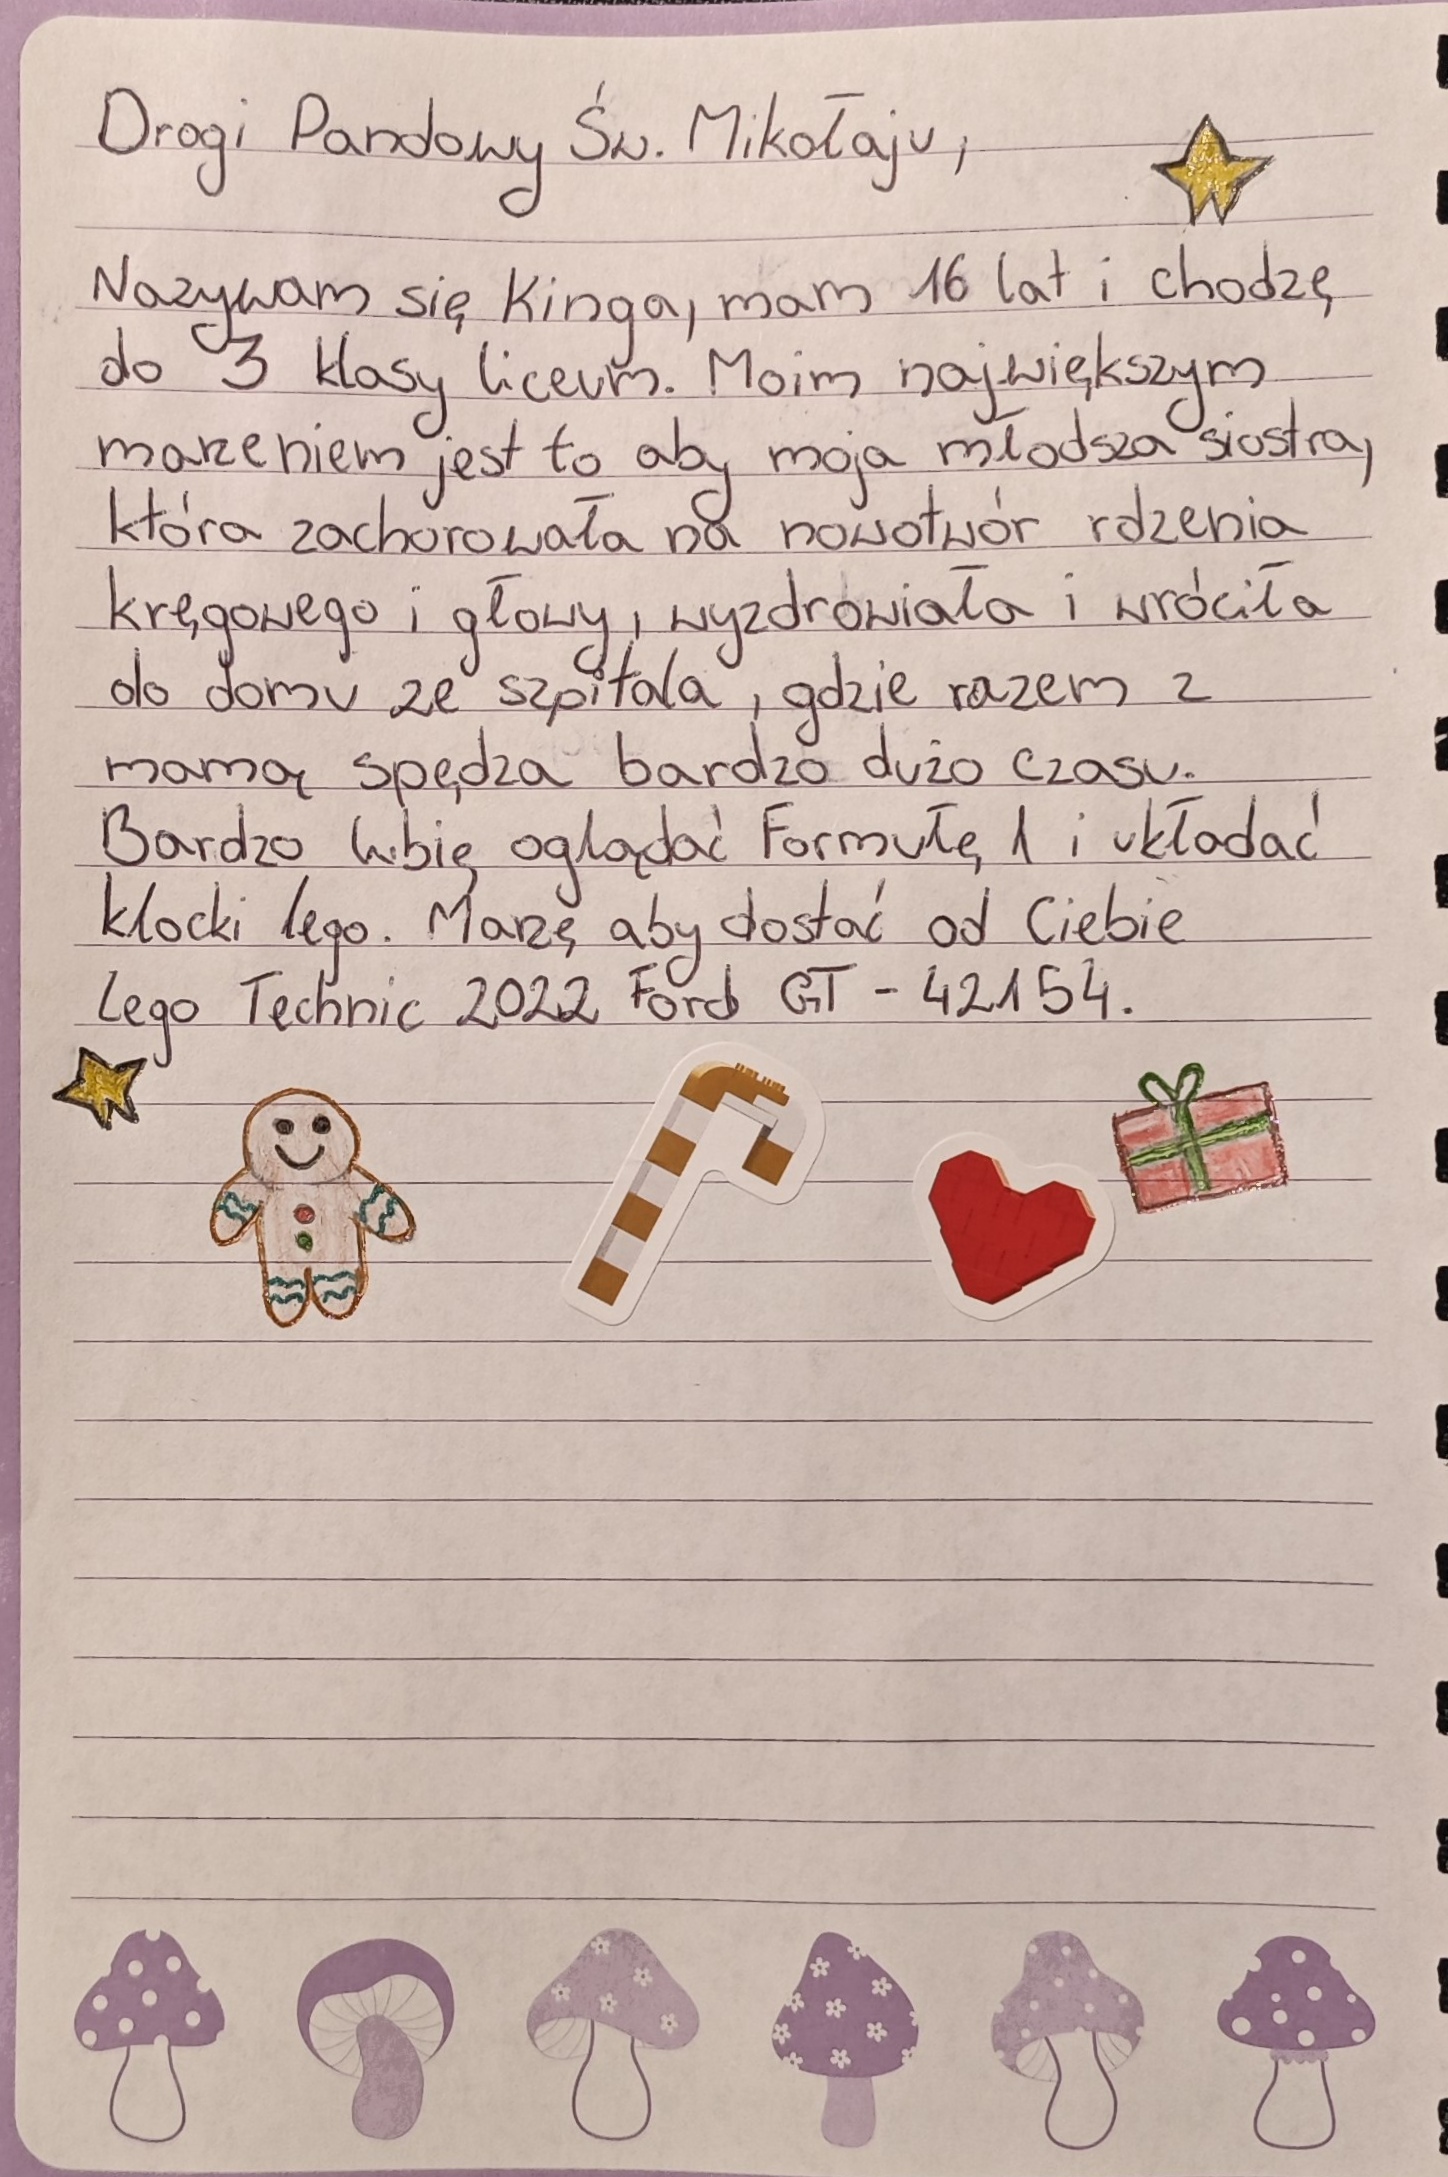 Drogi Pandowy Św. Mikołaju,
Nazywam się Kinga, mam 16 lat i chodzę
do 3 klasy liceum. Moim największym
marzeniem jest to aby moja młodsza siostra,
która zachorowała na nowotwór rdzenia
kręgowego i głowy, wyzdrowiała i wróciła
do domu ze szpitala, gdzie razem z
mamą spędza bardzo dużo czasu.
Bardzo lubię oglądać Formułę 1 i układać
klocki lego. Marzę aby dostać od Ciebie
Lego Technic 2022 Ford GT - 42154.